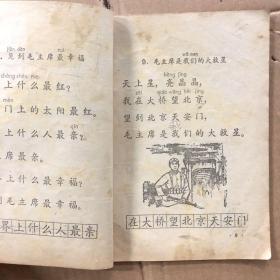 jiàn dào zuì
见到毛主席最幸福
上什么最红?
门上的太阳最红。
上什么人最亲?
席最亲。
上什么最幸福?
毛主席最幸福。
界上什么人最亲
9. 毛主席是我们的大救星
天上星,亮晶晶,
我在大桥望北京,
望到北京天安门,
毛主席是我们的大救星。
在大桥望北京天安门